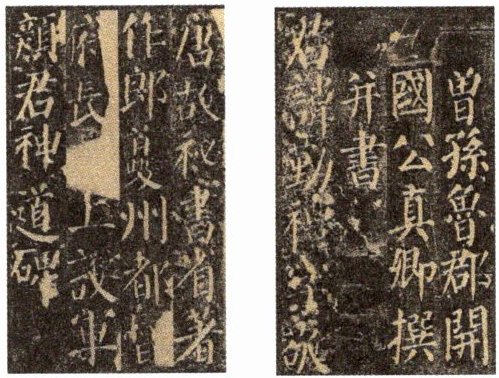 唐故秘書省著
作郎夔州都督
府長上護軍
顏君神道碑
曾孫魯郡開
國公真卿撰
并書
君諱勤禮字敬